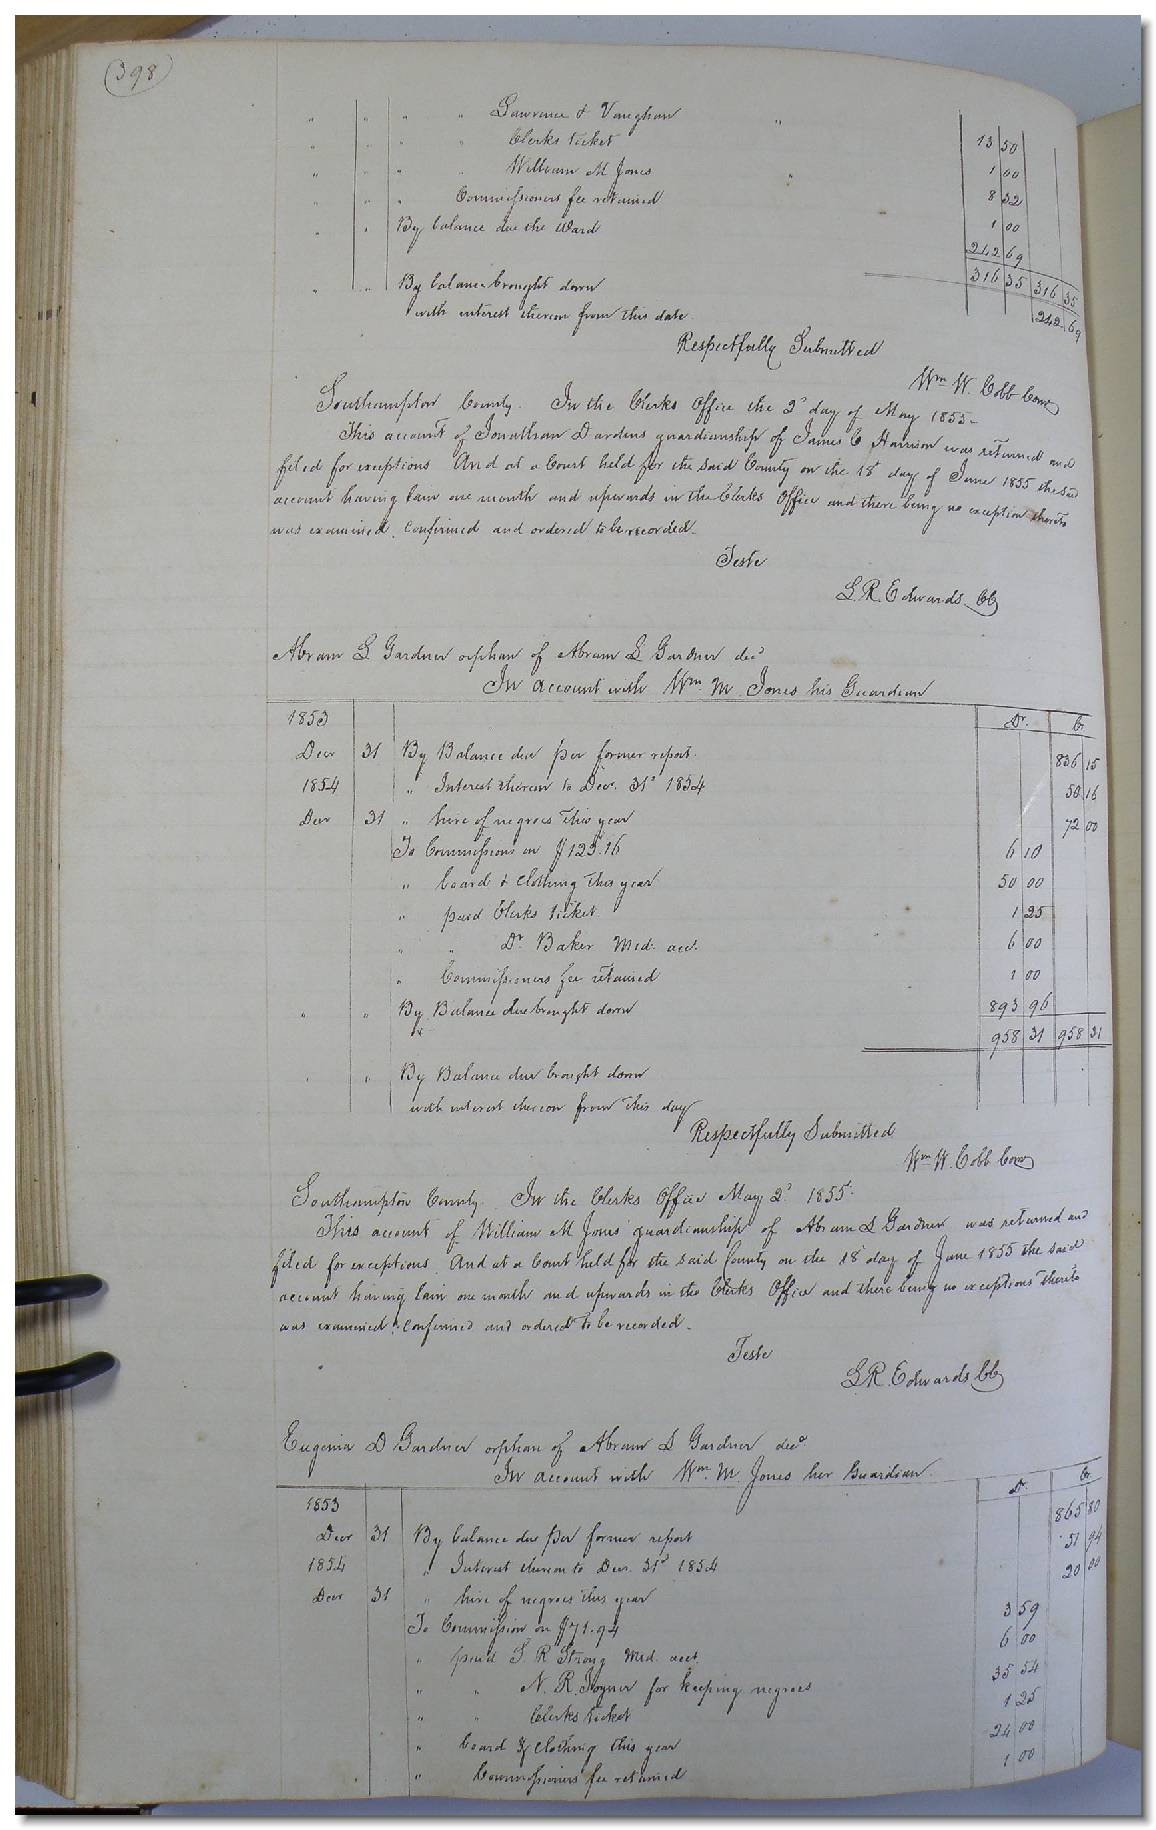 398
" " " " Lawrence & Vaughan " 13 50
" " " " Clerks ticket 1 00
" " " " William M Jones " 8 22
" " " Commissioners fee retained 1 00
" " By balance due the Ward 242 69
316 35 316 35
" " By balance brought down 242 69
with interest thereon from this date
Respectfully Submitted
Wm W. Cobb Comr
Southampton County. In the Clerks Office the 2d day of May 1855-
This account of Jonathan Dardens guardianship of James C Harrison was returned and
filed for exceptions And at a Court held for the said County on the 18th day of June 1855 the said
account having lain one month and upwards in the Clerks Office and there being no exception thereto
was examined, confirmed and ordered to be recorded-
Teste
L.R. Edwards CC
Abram L Gardner orphan of Abram L Gardner decd
In account with Wm M Jones his Guardian
1853 Dr. Cr
Decr 31 By Balance due per former report. 836 15
1854 " Interest thereon to Decr. 31st 1854 50 16
Decr 31 " hire of negroes this year 72 00
To Commissions on $125.16 6 10
" board & clothing this year 50 00
" paid Clerks ticket. 1 25
" " Dr. Baker Med. acct. 6 00
" Commissioners fee retained 1 00
" " By Balance due brought down 893 96
958 31 958 31
" " By Balance due brought down
with interest thereon from this day
Respectfully Submitted
Wm W. Cobb Comr
Southampton County. In the Clerks Office May 2d 1855.
This account of William M Jones guardianship of Abram L Gardner was returned and
filed for exceptions. And at a Court held for the said County on the 18th day of June 1855 the said
account having lain one month and upwards in the Clerks Office and there being no exceptions thereto
was examined, confirmed and ordered to be recorded-
Teste
L.R. Edwards CC
Eugenia D Gardner orphan of Abram L Gardner decd.
In account with Wm. M. Jones her Guardian.
1853 Dr. Cr
Decr 31 By balance due per former report 865 80
1854 " Interest thereon to Decr. 31st 1854 51 94
Decr 31 " hire of negroes this year 20 00
To Commission on $71.94 3 59
" paid S. R Strong Med. acct. 6 00
" " N. R. Joyner for keeping negroes 35 54
" " Clerks ticket 1 25
" board & clothing this year 24 00
" Commissioners fee retained 1 00